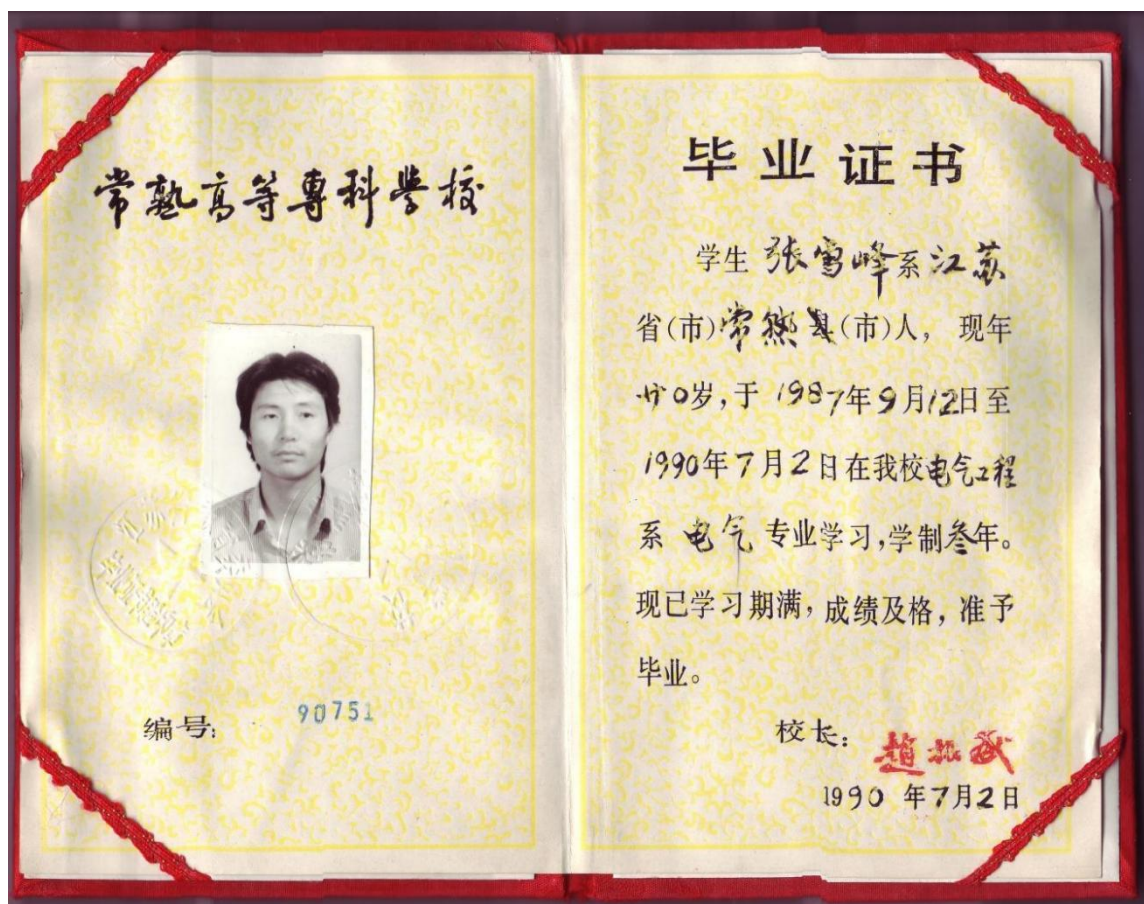 常熟高等專科學校
编号: 90751
毕业证书
学生 张雪峰系江苏
省(市)常熟县(市)人，现年
廿0岁,于 1987年9月12日至
1990年7月2日在我校电气工程
系 电气 专业学习,学制叁年。
现已学习期满，成绩及格，准予
毕业。
校长: 趙振武
1990 年7月2日